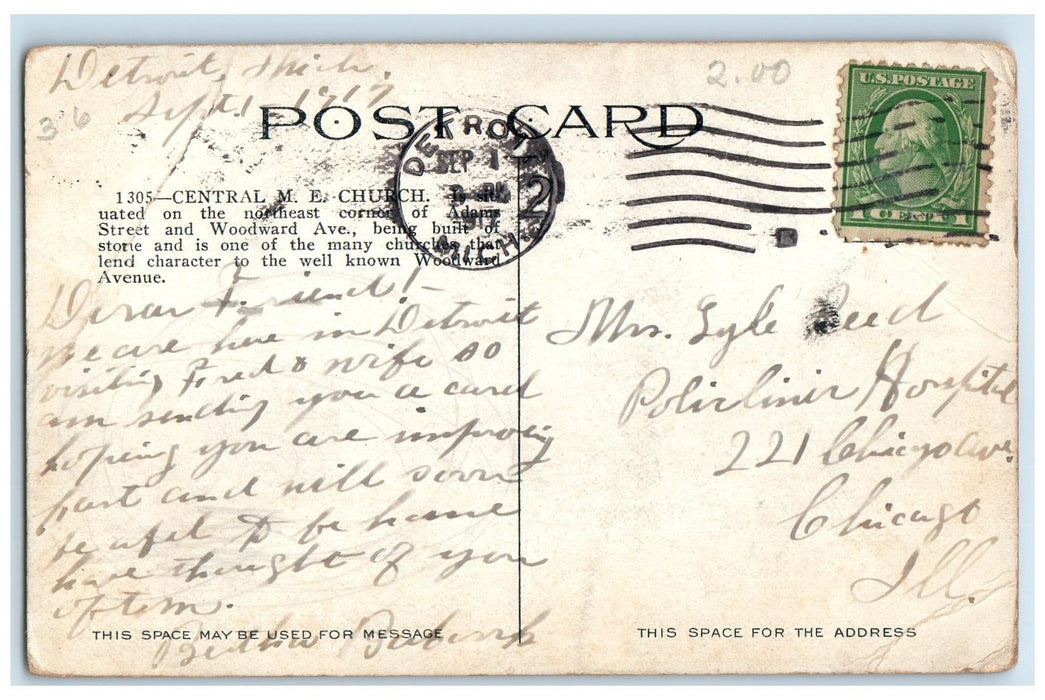 Detroit, Mich.
Sept 1 1917
36
2.00
POST CARD
U.S. POSTAGE
1 CENT 1
DETROIT
SEP 1
1917
MICH.
2
1305—CENTRAL M. E. CHURCH. Is sit-
uated on the northeast corner of Adams
Street and Woodward Ave., being built of
stone and is one of the many churches that
lend character to the well known Woodward
Avenue.
Dear Friend! -
We are here in Detroit
visiting Fred & wife so
am sending you a card
hoping you are improving
fast and will soon
be able to be home
have thought of you
often.
Bertha
Mrs. Lyle Reed
Policlinic Hospital
221 Chicago ave.
Chicago
Ill.
THIS SPACE MAY BE USED FOR MESSAGE
THIS SPACE FOR THE ADDRESS